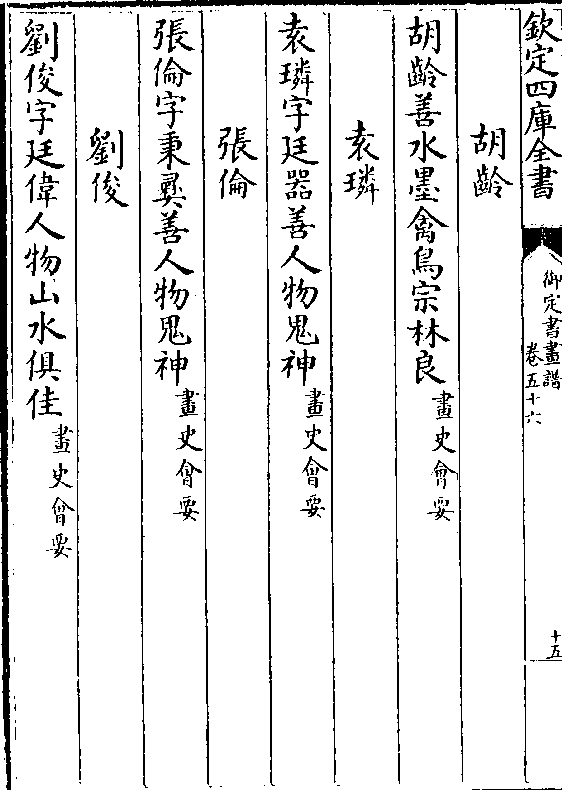 欽定四庫全書
御定書畫譜
卷五十六
十五
胡齡
胡齡善水墨禽鳥宗林良畫史會要
袁璘
袁璘字廷器善人物鬼神畫史會要
張倫
張倫字秉彛善人物鬼神畫史會要
劉俊
劉俊字廷偉人物山水俱佳畫史會要